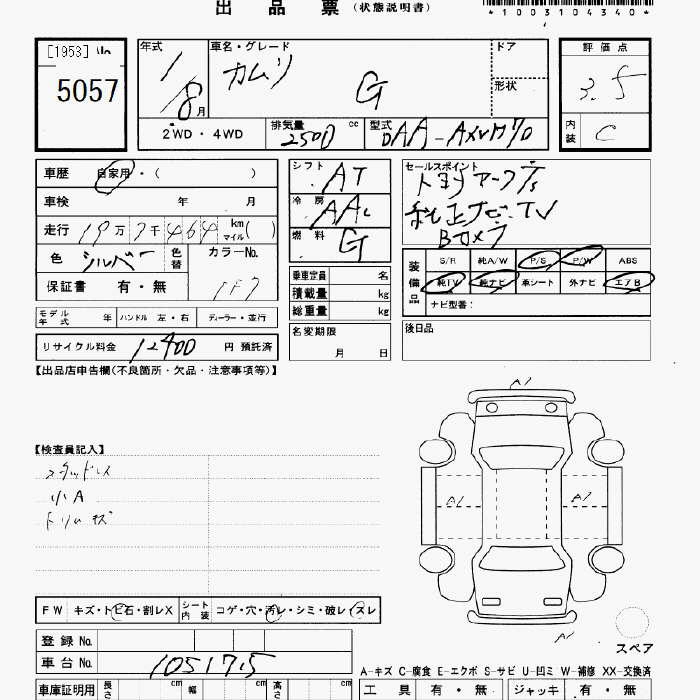 出 品 票 (状態説明書)
*1003104340*
[1953]
5057
年式 1/8月
車名・グレード カムリ G
ドア
形状
評価点 3.5
内装 C
2WD・4WD
排気量 2500 cc
型式 DAA-AXVH70
車歴 自家用・( )
車検 年 月
走行 19万7千464 km マイル( )
色 シルバー 色替 カラーNo. 1F7
保証書 有・無
シフト AT
冷房 AAC
燃料 G
セールスポイント
純正ナビ、TV
Bカメラ
装備品
S/R 純A/W P/S P/W ABS
純TV 純ナビ 革シート 外ナビ エアB
ナビ型番:
乗車定員 名
積載量 kg
総重量 kg
モデル年式 年 ハンドル 左・右 ディーラー・並行
名変期限 月 日
後日品
リサイクル料金 12400 円 預託済
【出品店申告欄(不良箇所・欠品・注意事項等)】
A1
【検査員記入】
スタッドレス
小A
トリムキズ
A1
A2
A1
スペア
FW キズ・トビ石・割レX シート内装 コゲ・穴・汚レ・シミ・破レ・スレ
登録No.
車台No. 1051715
A-キズ C-腐食 E-エクボ S-サビ U-凹ミ W-補修 XX-交換済
車庫証明用 長さ cm 幅 cm 高さ cm
工具 有・無 ジャッキ 有・無